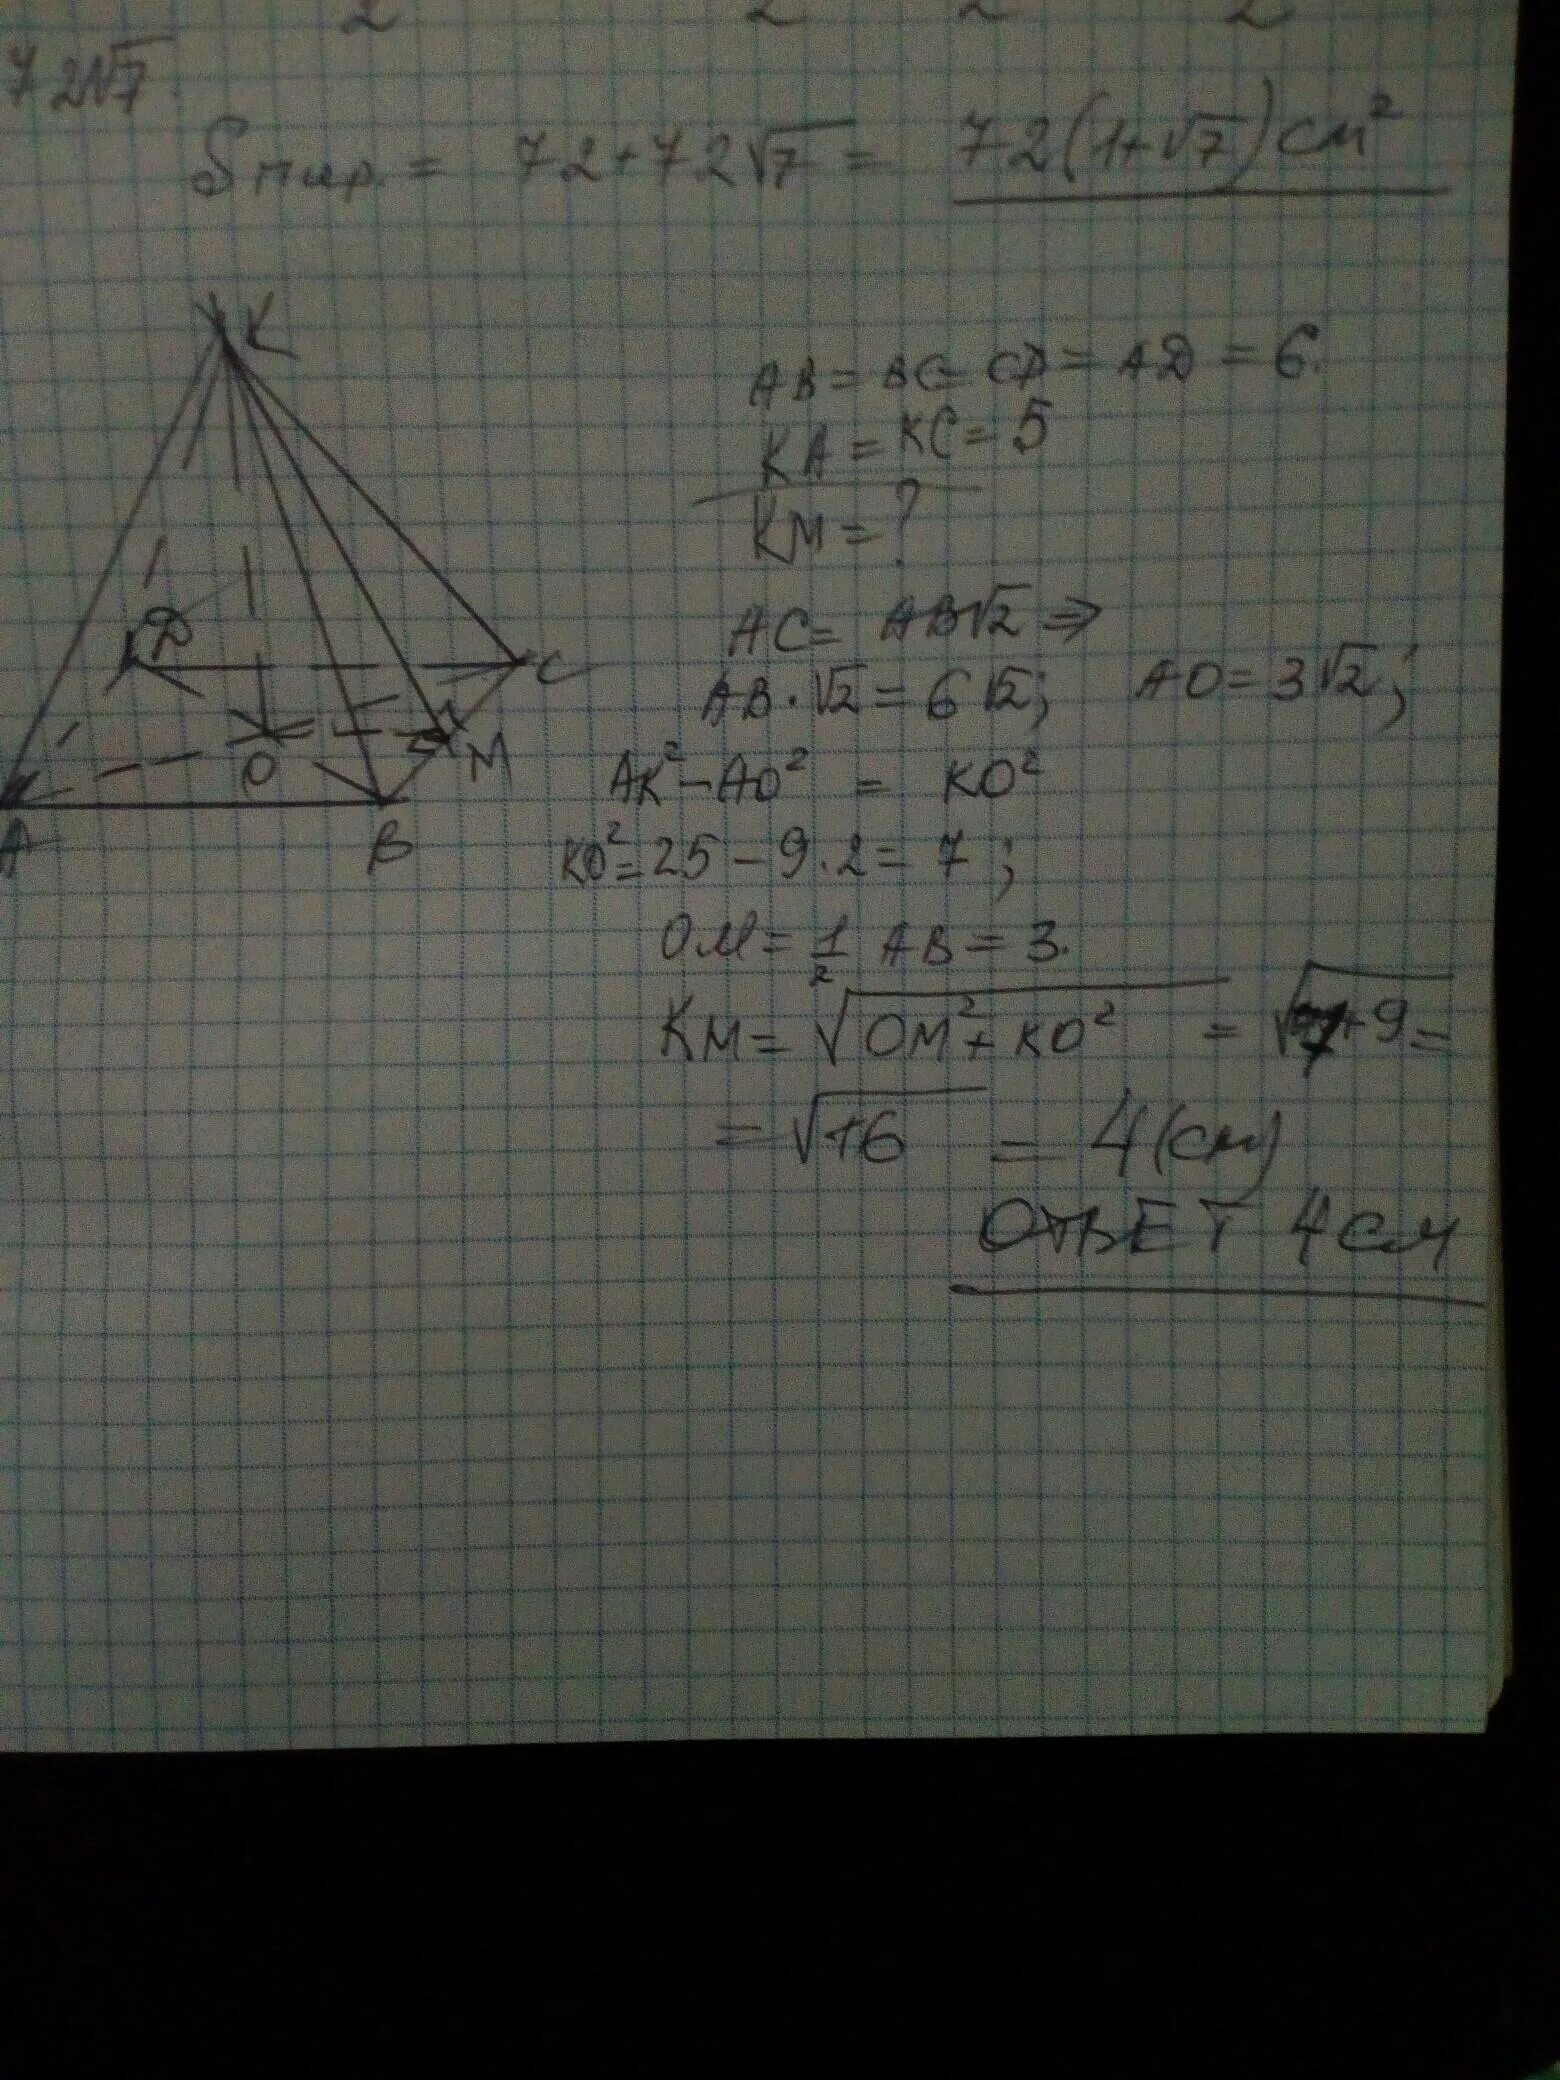 2 2 2 2
72√7.
Sпир. = 72+72√7 = 72(1+√7)см²
K
AB = BC = CD = AD = 6.
KA = KC = 5
KM = ?
D
C
AC = AB√2 ⇒
AB·√2 = 6√2; AO = 3√2;
O
M
A
B
AK² - AO² = KO²
KO² = 25 - 9·2 = 7;
OM = 1/2 AB = 3.
KM = √OM² + KO² = √7+9 =
= √16 = 4 (см)
ОТВЕТ 4 см